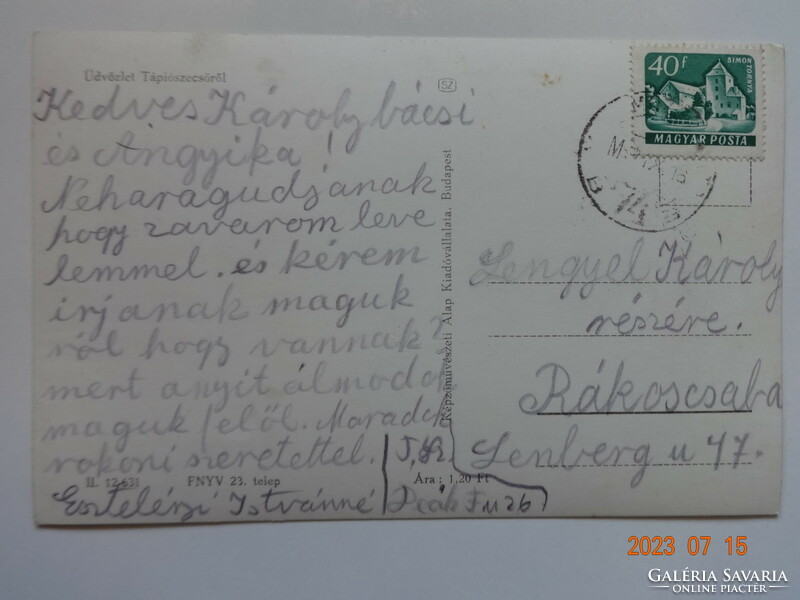 Üdvözlet Tápiószecsőről
Kedves Károly bácsi
és Ángyika!
Neharagudjanak
hogy zavarom leve
lemmel. és kérem
irjanak maguk
ról hogy vannak?
mert anyit álmodok
maguk felől. Maradok
rokoni szeretettel.
II. 12.631 FNYV 23. telep
Istvánné
Deák F u 26
SZ
Képzőművészeti Alap Kiadóvállalata, Budapest
Ára: 1,20 Ft
40f
SIMONTORNYA
MAGYAR POSTA
Lengyel Károly
részére.
Rákoscsaba
Lenberg u 47.
2023 07 15
GALÉRIA SAVARIA
ONLINE PIACTÉR